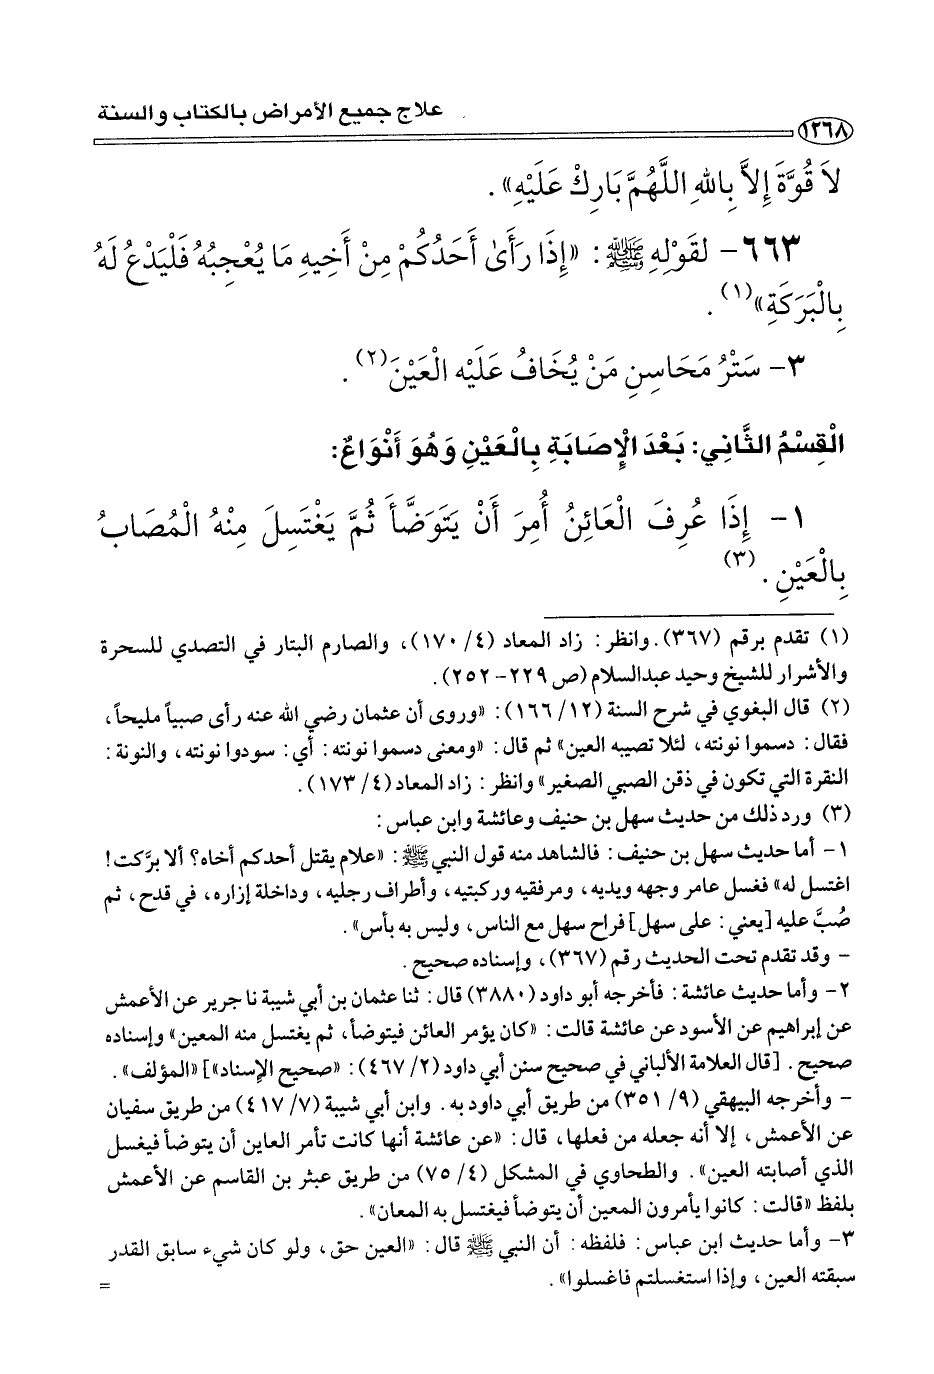 علاج جميع الأمراض بالكتاب والسنة
١٢٦٨
لاَ قُوَّةَ إِلاَّ بِاللهِ اللَّهُمَّ بَارِكْ عَلَيْهِ» .
٦٦٣- لقَوْلِهِ ﷺ : «إِذَا رَأَىٰ أَحَدُكُمْ مِنْ أَخِيهِ مَا يُعْجِبُهُ فَلْيَدْعُ لَهُ
بِالْبَرَكَةِ»(١) .
٣- سَتْرُ مَحَاسِنِ مَنْ يُخَافُ عَلَيْه الْعَيْنَ(٢) .
الْقِسْمُ الثَّانِي: بَعْدَ الْإِصَابَةِ بِالْعَيْنِ وَهُوَ أَنْوَاعٌ:
١- إِذَا عُرِفَ الْعَائِنُ أُمِرَ أَنْ يَتَوَضَّأَ ثُمَّ يَغْتَسِلَ مِنْهُ الْمُصَابُ
بِالْعَيْنِ . (٣)
(١) تقدم برقم (٣٦٧). وانظر: زاد المعاد (٤/ ١٧٠)، والصارم البتار في التصدي للسحرة
والأشرار للشيخ وحيد عبدالسلام (ص ٢٢٩- ٢٥٢).
(٢) قال البغوي في شرح السنة (١٢/ ١٦٦): «وروى أن عثمان رضي الله عنه رأى صبياً مليحاً،
فقال: دسموا نونته، لئلا تصيبه العين» ثم قال: «ومعنى دسموا نونته: أي: سودوا نونته، والنونة:
النقرة التي تكون في ذقن الصبي الصغير» وانظر: زاد المعاد (٤/ ١٧٣).
(٣) ورد ذلك من حديث سهل بن حنيف وعائشة وابن عباس:
١- أما حديث سهل بن حنيف: فالشاهد منه قول النبي ﷺ: «علام يقتل أحدكم أخاه؟ ألا برَّكت!
اغتسل له» فغسل عامر وجهه ويديه، ومرفقيه وركبتيه، وأطراف رجليه، وداخلة إزاره، في قدح، ثم
صُبَّ عليه [يعني: على سهل] فراح سهل مع الناس، وليس به بأس».
- وقد تقدم تحت الحديث رقم (٣٦٧)، وإسناده صحيح.
٢- وأما حديث عائشة: فأخرجه أبو داود (٣٨٨٠) قال: ثنا عثمان بن أبي شيبة نا جرير عن الأعمش
عن إبراهيم عن الأسود عن عائشة قالت: «كان يؤمر العائن فيتوضأ، ثم يغتسل منه المعين» وإسناده
صحيح. [قال العلامة الألباني في صحيح سنن أبي داود (٢/ ٤٦٧): «صحيح الإسناد»] «المؤلف».
- وأخرجه البيهقي (٩/ ٣٥١) من طريق أبي داود به. وابن أبي شيبة (٧/ ٤١٧) من طريق سفيان
عن الأعمش، إلا أنه جعله من فعلها، قال: «عن عائشة أنها كانت تأمر العاين أن يتوضأ فيغسل
الذي أصابته العين». والطحاوي في المشكل (٤/ ٧٥) من طريق عبثر بن القاسم عن الأعمش
بلفظ «قالت: كانوا يأمرون المعين أن يتوضأ فيغتسل به المعان».
٣- وأما حديث ابن عباس: فلفظه: أن النبي ﷺ قال: «العين حق، ولو كان شيء سابق القدر
سبقته العين، وإذا استغسلتم فاغسلوا».
=